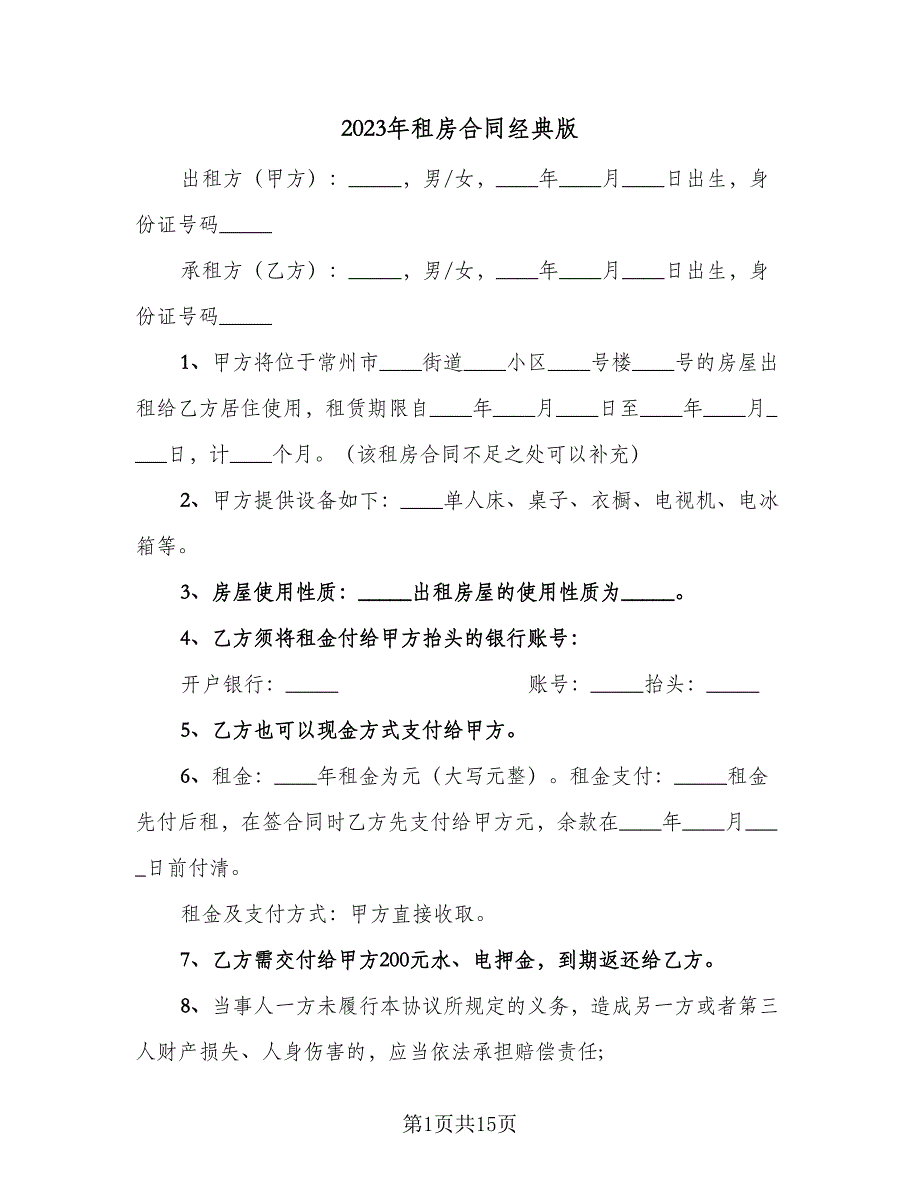 2023年租房合同经典版
出租方（甲方）：_____，男/女，____年____月____日出生，身
份证号码_____
承租方（乙方）：_____，男/女，____年____月____日出生，身
份证号码_____
1、甲方将位于常州市____街道____小区____号楼____号的房屋出
租给乙方居住使用，租赁期限自____年____月____日至____年____月_
___日，计____个月。（该租房合同不足之处可以补充）
2、甲方提供设备如下：____单人床、桌子、衣橱、电视机、电冰
箱等。
3、房屋使用性质：_____出租房屋的使用性质为_____。
4、乙方须将租金付给甲方抬头的银行账号：
开户银行：_____ 账号：_____抬头：_____
5、乙方也可以现金方式支付给甲方。
6、租金：____年租金为元（大写元整）。租金支付：_____租金
先付后租，在签合同时乙方先支付给甲方元，余款在____年____月___
_日前付清。
租金及支付方式：甲方直接收取。
7、乙方需交付给甲方200元水、电押金，到期返还给乙方。
8、当事人一方未履行本协议所规定的义务，造成另一方或者第三
人财产损失、人身伤害的，应当依法承担赔偿责任;
第1页共15页